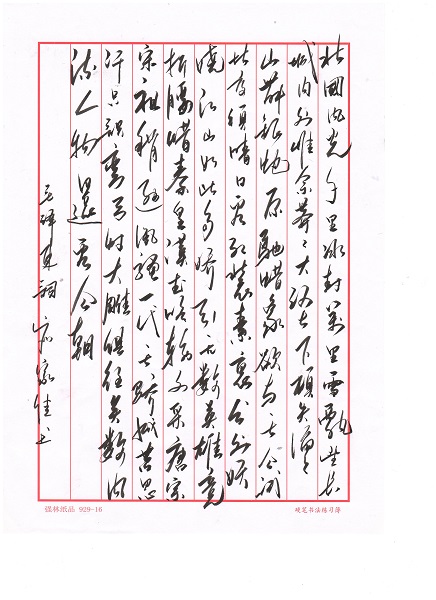 北國风光千里冰封萬里雪飘望长
城内外惟余莽莽大河上下頓失滔滔
山舞銀蛇原馳蜡象欲与天公试
比高须晴日看红装素裹分外妖
娆江山如此多娇引无数英雄竞
折腰惜秦皇漢武略输文采唐宗
宋祖稍逊风骚一代天骄成吉思
汗只識弯弓射大雕俱往矣数风
流人物還看今朝
毛泽东词 家佳书
纸品 929-16
硬笔书法练习簿